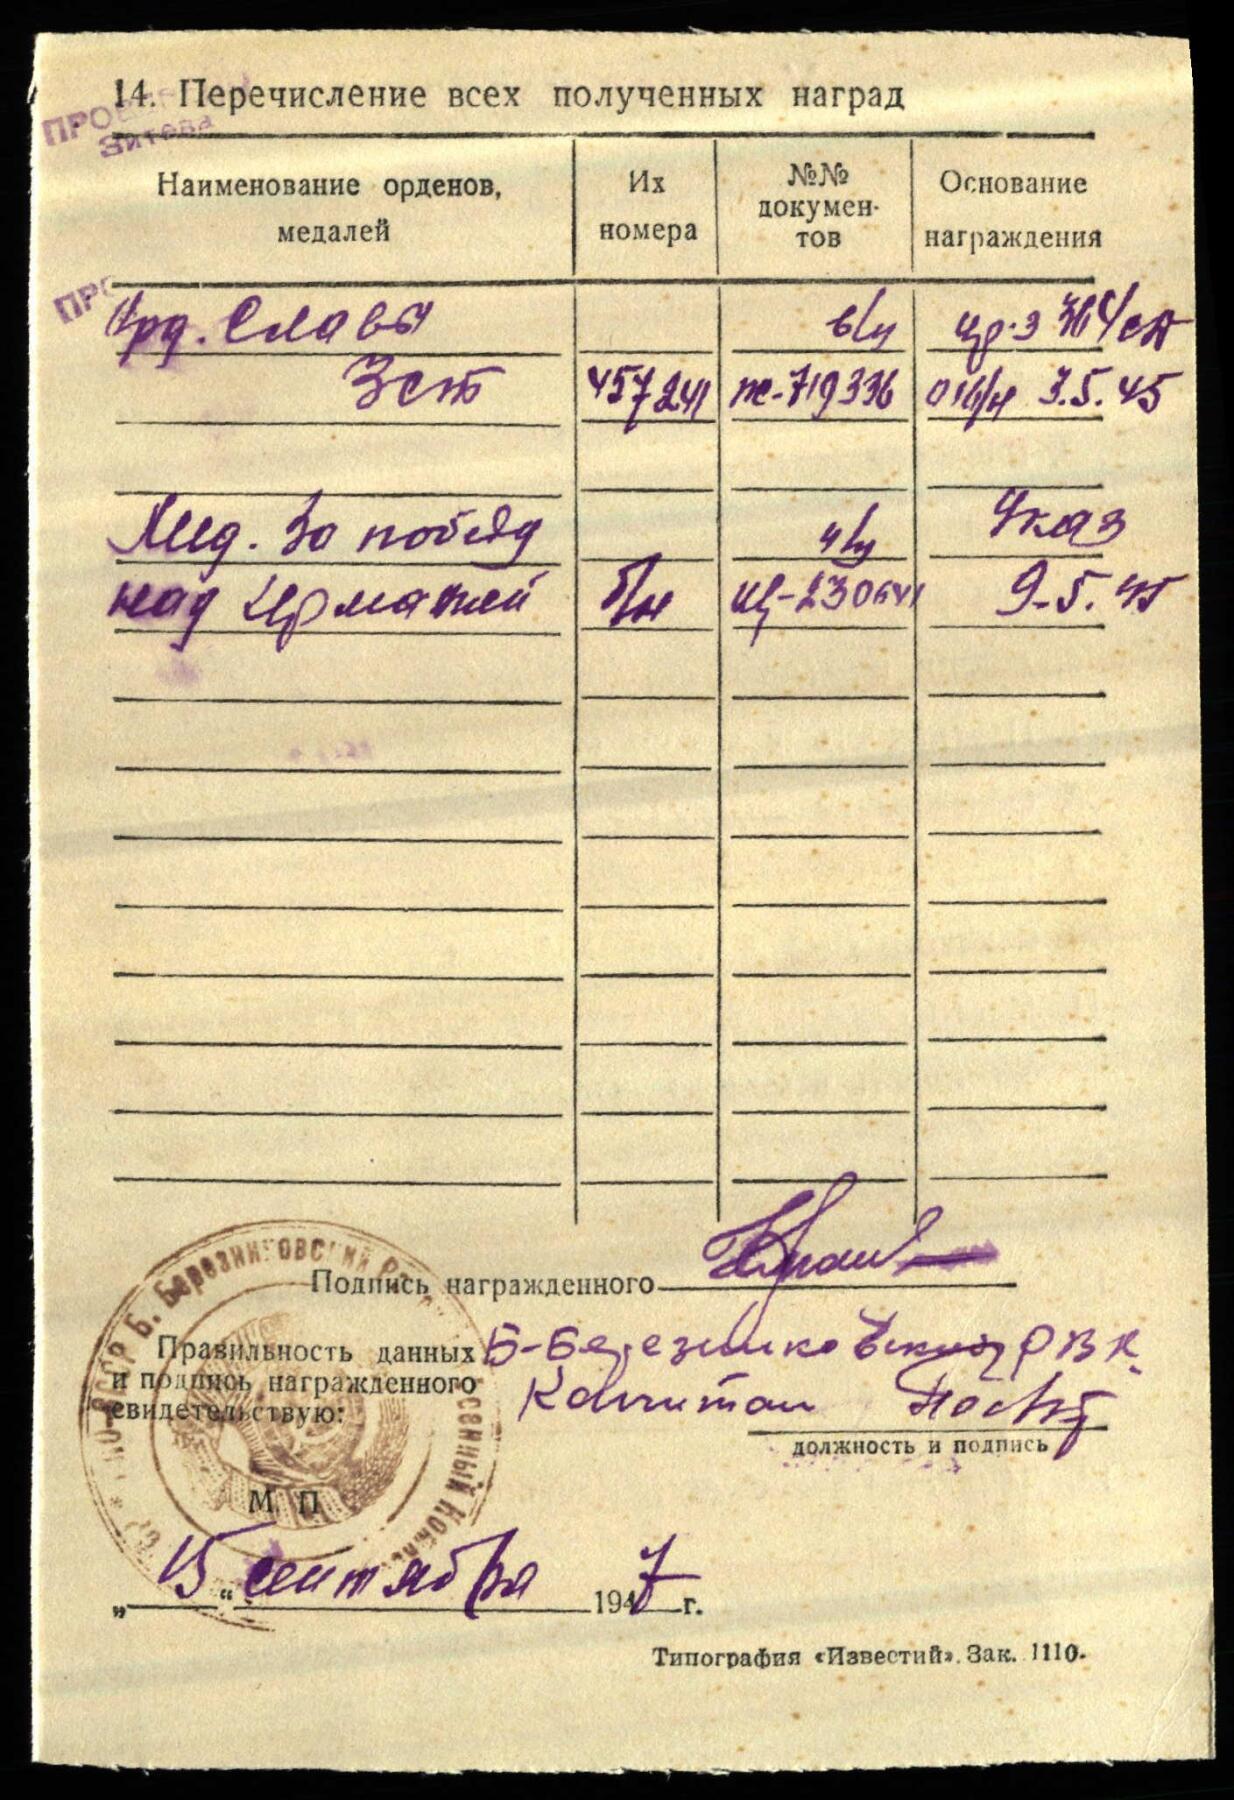 14. Перечисление всех полученных наград
Зитева
Наименование орденов, медалей
Их номера
№№ докумен-тов
Основание награждения
Орд. Славы
3 ст
457241
в/у
ж-719336
3.5.45
Мед. За побед
над Германией
б/н
Указ
9.5.45
Подпись награжденного
Правильность данных
и подпись награжденного
свидетельствую:
Б-Березниковский РВК
Капитан
должность и подпись
М. П
„15“ сентября 1947 г.
Типография «Известий». Зак. 1110.